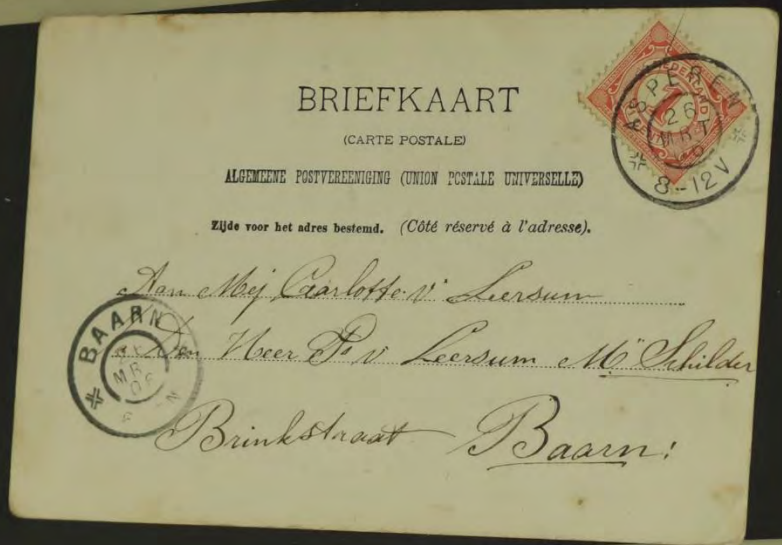 BRIEFKAART
(CARTE POSTALE)
ALGEMEENE POSTVEREENIGING (UNION POSTALE UNIVERSELLE)
Zijde voor het adres bestemd. (Côté réservé à l'adresse).
NEDERLAND
1
ASPEREN
26
MRT
8-12V
Aan Mej Carlotte v Leersum
Den Heer Ps v Leersum Mr Schilder
Brinkstraat Baarn!
BAARN
MR
06
N